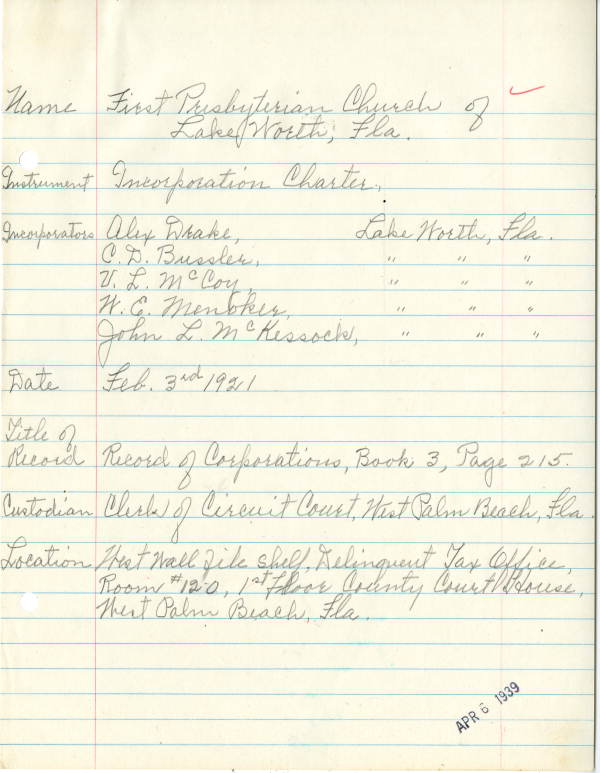 Name First Presbyterian Church of
Lake Worth, Fla.
Instrument Incorporation Charter,
Incorporators Alex Drake, Lake Worth, Fla.
C. D. Bussler, " " "
V. L. McCoy, " " "
W. E. Menoker, " " "
John L. McKessock, " " "
Date Feb. 3rd 1921
Title of
Record Record of Corporations, Book 3, Page 215.
Custodian Clerk of Circuit Court, West Palm Beach, Fla.
Location West Wall file shelf, Delinquent Tax Office,
Room #120, 1st Floor County Court House,
West Palm Beach, Fla.
APR 6 1939